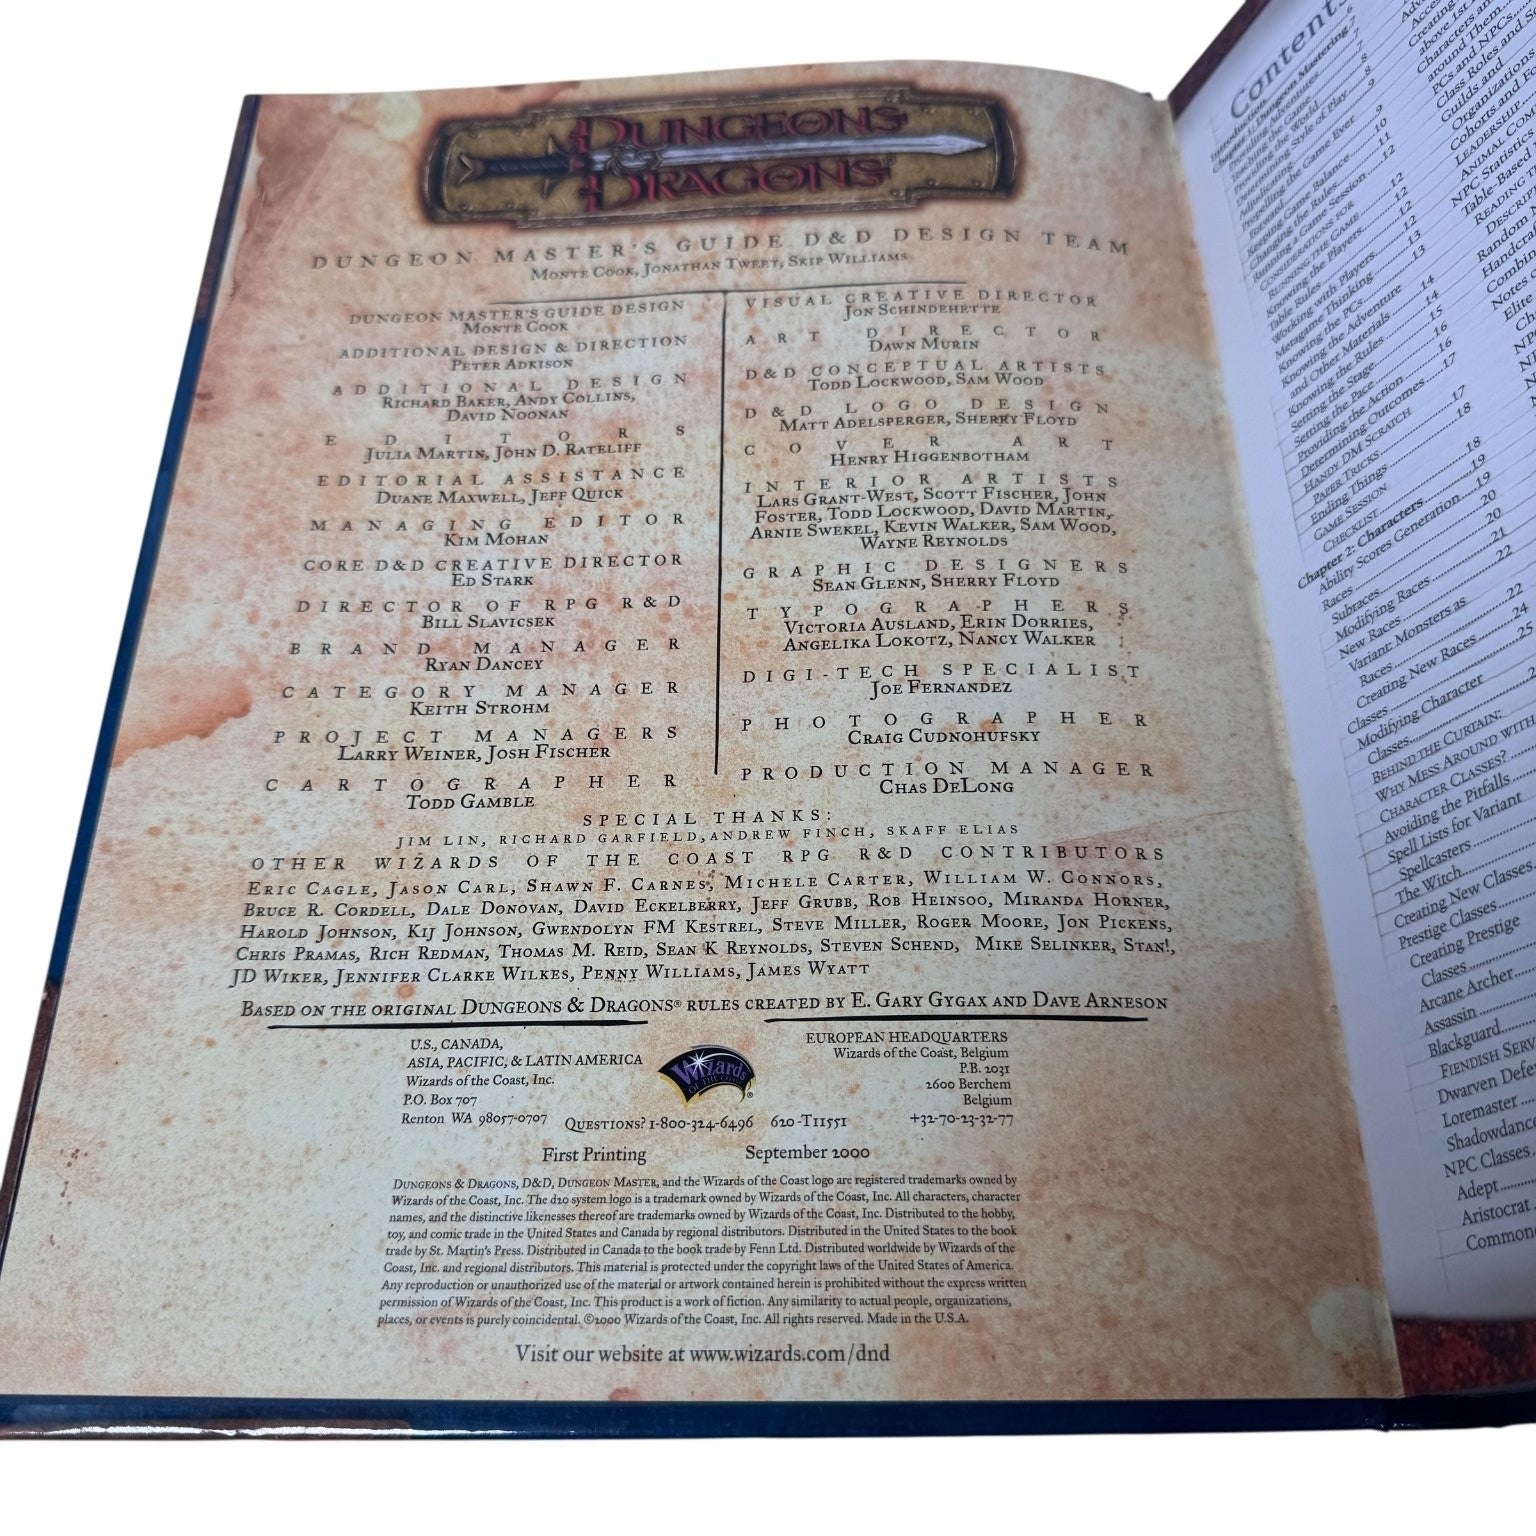 DUNGEONS
& DRAGONS
DUNGEON MASTER'S GUIDE D&D DESIGN TEAM
MONTE COOK, JONATHAN TWEET, SKIP WILLIAMS
DUNGEON MASTER'S GUIDE DESIGN
MONTE COOK
ADDITIONAL DESIGN & DIRECTION
PETER ADKISON
ADDITIONAL DESIGN
RICHARD BAKER, ANDY COLLINS,
DAVID NOONAN
EDITORS
JULIA MARTIN, JOHN D. RATELIFF
EDITORIAL ASSISTANCE
DUANE MAXWELL, JEFF QUICK
MANAGING EDITOR
KIM MOHAN
CORE D&D CREATIVE DIRECTOR
ED STARK
DIRECTOR OF RPG R&D
BILL SLAVICSEK
BRAND MANAGER
RYAN DANCEY
CATEGORY MANAGER
KEITH STROHM
PROJECT MANAGERS
LARRY WEINER, JOSH FISCHER
CARTOGRAPHER
TODD GAMBLE
VISUAL CREATIVE DIRECTOR
JON SCHINDEHETTE
ART DIRECTOR
DAWN MURIN
D&D CONCEPTUAL ARTISTS
TODD LOCKWOOD, SAM WOOD
D&D LOGO DESIGN
MATT ADELSPERGER, SHERRY FLOYD
COVER ART
HENRY HIGGENBOTHAM
INTERIOR ARTISTS
LARS GRANT-WEST, SCOTT FISCHER, JOHN
FOSTER, TODD LOCKWOOD, DAVID MARTIN,
ARNIE SWEKEL, KEVIN WALKER, SAM WOOD,
WAYNE REYNOLDS
GRAPHIC DESIGNERS
SEAN GLENN, SHERRY FLOYD
TYPOGRAPHERS
VICTORIA AUSLAND, ERIN DORRIES,
ANGELIKA LOKOTZ, NANCY WALKER
DIGI-TECH SPECIALIST
JOE FERNANDEZ
PHOTOGRAPHER
CRAIG CUDNOHUFSKY
PRODUCTION MANAGER
CHAS DELONG
SPECIAL THANKS:
JIM LIN, RICHARD GARFIELD, ANDREW FINCH, SKAFF ELIAS
OTHER WIZARDS OF THE COAST RPG R&D CONTRIBUTORS
ERIC CAGLE, JASON CARL, SHAWN F. CARNES, MICHELE CARTER, WILLIAM W. CONNORS,
BRUCE R. CORDELL, DALE DONOVAN, DAVID ECKELBERRY, JEFF GRUBB, ROB HEINSOO, MIRANDA HORNER,
HAROLD JOHNSON, KIJ JOHNSON, GWENDOLYN FM KESTREL, STEVE MILLER, ROGER MOORE, JON PICKENS,
CHRIS PRAMAS, RICH REDMAN, THOMAS M. REID, SEAN K REYNOLDS, STEVEN SCHEND, MIKE SELINKER, STAN!,
JD WIKER, JENNIFER CLARKE WILKES, PENNY WILLIAMS, JAMES WYATT
BASED ON THE ORIGINAL DUNGEONS & DRAGONS® RULES CREATED BY E. GARY GYGAX AND DAVE ARNESON
U.S., CANADA,
ASIA, PACIFIC, & LATIN AMERICA
Wizards of the Coast, Inc.
P.O. Box 707
Renton WA 98057-0707
Wizards
OF THE COAST
®
EUROPEAN HEADQUARTERS
Wizards of the Coast, Belgium
P.B. 2031
2600 Berchem
Belgium
+32-70-23-32-77
QUESTIONS? 1-800-324-6496 620-T11551
First Printing September 2000
DUNGEONS & DRAGONS, D&D, DUNGEON MASTER, and the Wizards of the Coast logo are registered trademarks owned by
Wizards of the Coast, Inc. The d20 system logo is a trademark owned by Wizards of the Coast, Inc. All characters, character
names, and the distinctive likenesses thereof are trademarks owned by Wizards of the Coast, Inc. Distributed to the hobby,
toy, and comic trade in the United States and Canada by regional distributors. Distributed in the United States to the book
trade by St. Martin's Press. Distributed in Canada to the book trade by Fenn Ltd. Distributed worldwide by Wizards of the
Coast, Inc. and regional distributors. This material is protected under the copyright laws of the United States of America.
Any reproduction or unauthorized use of the material or artwork contained herein is prohibited without the express written
permission of Wizards of the Coast, Inc. This product is a work of fiction. Any similarity to actual people, organizations,
places, or events is purely coincidental. ©2000 Wizards of the Coast, Inc. All rights reserved. Made in the U.S.A.
Visit our website at www.wizards.com/dnd
Contents
Introduction
Chapter 1: Dungeon Mastering
Providing Adventures
Teaching the Game
Providing the World
Determining Style of Play
Adjudicating
Propelling the Game Ever
Forward
Keeping Game Balance
Changing the Rules
Running a Game Session
CONSIDERATIONS FOR
RUNNING THE GAME
Knowing the Players
Table Rules
Working with Players
Metagame Thinking
Knowing the PCs
Knowing the Adventure
and Other Materials
Knowing the Rules
Setting the Stage
Setting the Pace
Providing the Action
Determining Outcomes
HANDY DM SCRATCH
PAPER TRICKS
Ending Things
GAME SESSION
CHECKLIST
Chapter 2: Characters
Ability Scores Generation
Races
Subraces
Modifying Races
New Races
Variant: Monsters as
Races
Creating New Races
Classes
Modifying Character
Classes
BEHIND THE CURTAIN:
WHY MESS AROUND WITH
CHARACTER CLASSES?
Avoiding the Pitfalls
Spell Lists for Variant
Spellcasters
The Witch
Creating New Classes
Prestige Classes
Creating Prestige
Classes
Arcane Archer
Assassin
Blackguard
FIENDISH
Dwarven
Loremaster
NPC Classes
Adept
Aristocrat